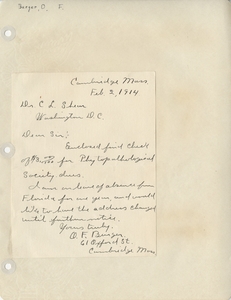 Burger, O. F.
Cambridge Mass
Feb 2, 1914
Dr. C L Shear
Washington D.C.
Dear Sir:
Enclosed find check
of for Phytopathological
Society dues.
I am on leave of absence from
Florida for one year, and would
like to have the address changed
until further notice.
Yours truly,
O. F. Burger
61 Oxford St.
Cambridge Mass